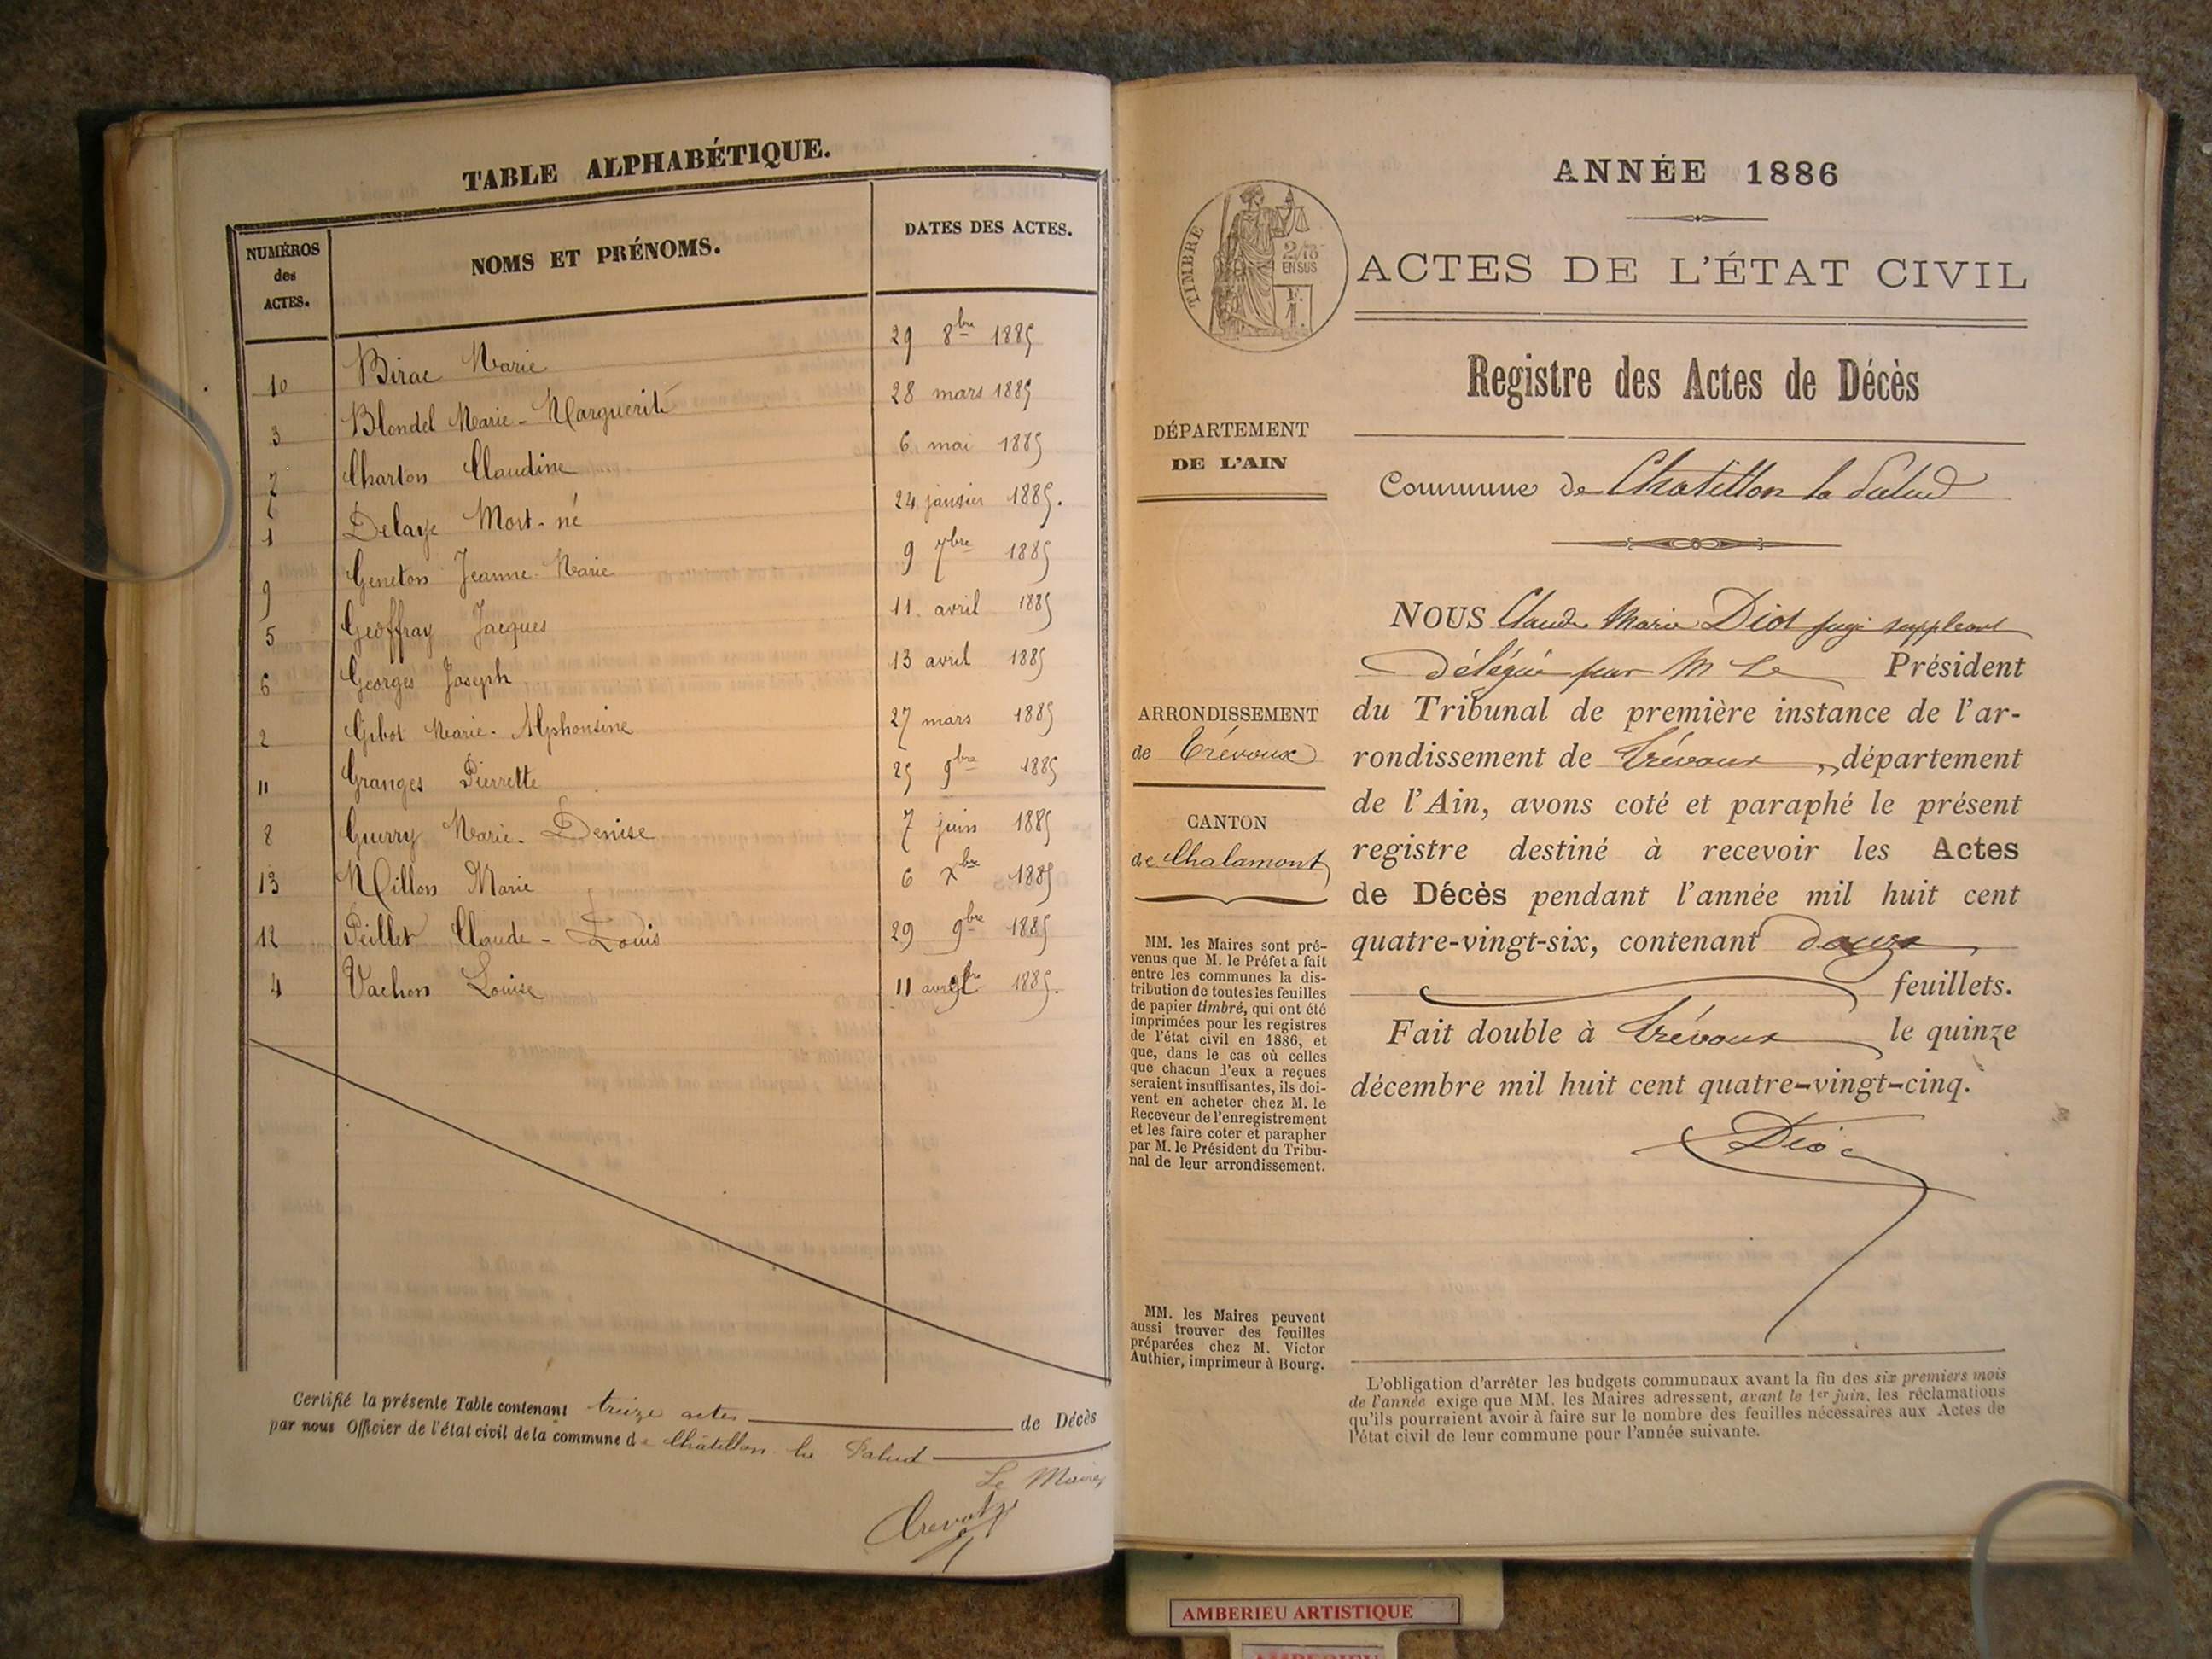 TABLE ALPHABÉTIQUE.
NUMÉROS
des
ACTES.
NOMS ET PRÉNOMS.
DATES DES ACTES.
10 Birac Marie 29 8bre 1885
3 Blondel Marie-Marguerite 28 mars 1885
7 Charton Claudine 6 mai 1885
1 Delaye Mort-né 24 janvier 1885.
9 Geneton Jeanne-Marie 9 7bre 1885
5 Geoffray Jacques 11 avril 1885
6 Georges Joseph 13 avril 1885
2 Gibot Marie-Alphonsine 27 mars 1885
11 Granges Pierrette 25 9bre 1885
8 Guerry Marie-Denise 7 juin 1885
13 Millon Marie 6 Xbre 1885
12 Peillet Claude-Louis 29 9bre 1885
4 Vachon Louise 11 avril 1885.
Certifié la présente Table contenant treize actes de Décès
par nous Officier de l'état civil de la commune de Châtillon la Palud
Le Maire,
ANNÉE 1886
TIMBRE
2/10
EN SUS
ACTES DE L'ÉTAT CIVIL
Registre des Actes de Décès
DÉPARTEMENT
DE L'AIN
Commune de Chatillon la Palud
NOUS Claude Marie Diot juge suppleant
délégué par M Le Président
du Tribunal de première instance de l'ar-
rondissement de Trévoux, département
de l'Ain, avons coté et paraphé le présent
registre destiné à recevoir les Actes
de Décès pendant l'année mil huit cent
quatre-vingt-six, contenant douze
feuillets.
Fait double à Trévoux le quinze
décembre mil huit cent quatre-vingt-cinq.
Diot
ARRONDISSEMENT
de Trévoux
CANTON
de Chalamont
MM. les Maires sont pré-
venus que M. le Préfet a fait
entre les communes la dis-
tribution de toutes les feuilles
de papier timbré, qui ont été
imprimées pour les registres
de l'état civil en 1886, et
que, dans le cas où celles
que chacun d'eux a reçues
seraient insuffisantes, ils doi-
vent en acheter chez M. le
Receveur de l'enregistrement
et les faire coter et parapher
par M. le Président du Tribu-
nal de leur arrondissement.
MM. les Maires peuvent
aussi trouver des feuilles
préparées chez M. Victor
Authier, imprimeur à Bourg.
L'obligation d'arrêter les budgets communaux avant la fin des six premiers mois
de l'année exige que MM. les Maires adressent, avant le 1er juin, les réclamations
qu'ils pourraient avoir à faire sur le nombre des feuilles nécessaires aux Actes de
l'état civil de leur commune pour l'année suivante.
AMBERIEU ARTISTIQUE
AMBERIEU